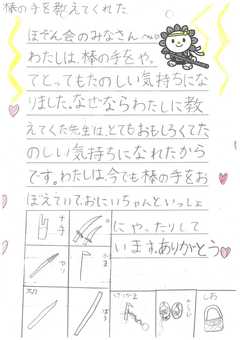 棒の手を教えてくれた
ほぞん会のみなさんへ
わたしは、棒の手をや。
てとってもたのしい気持ちにな
りました。なぜならわたしに教
えてくた先生はとてもおもしろくてた
のしい気持ちになれたから
です。わたしは、今でも棒の手をお
ぼえていて、おにいちゃんといっしょ
にや、たりして
います。ありがとう
十手
やり
かま
ぼう